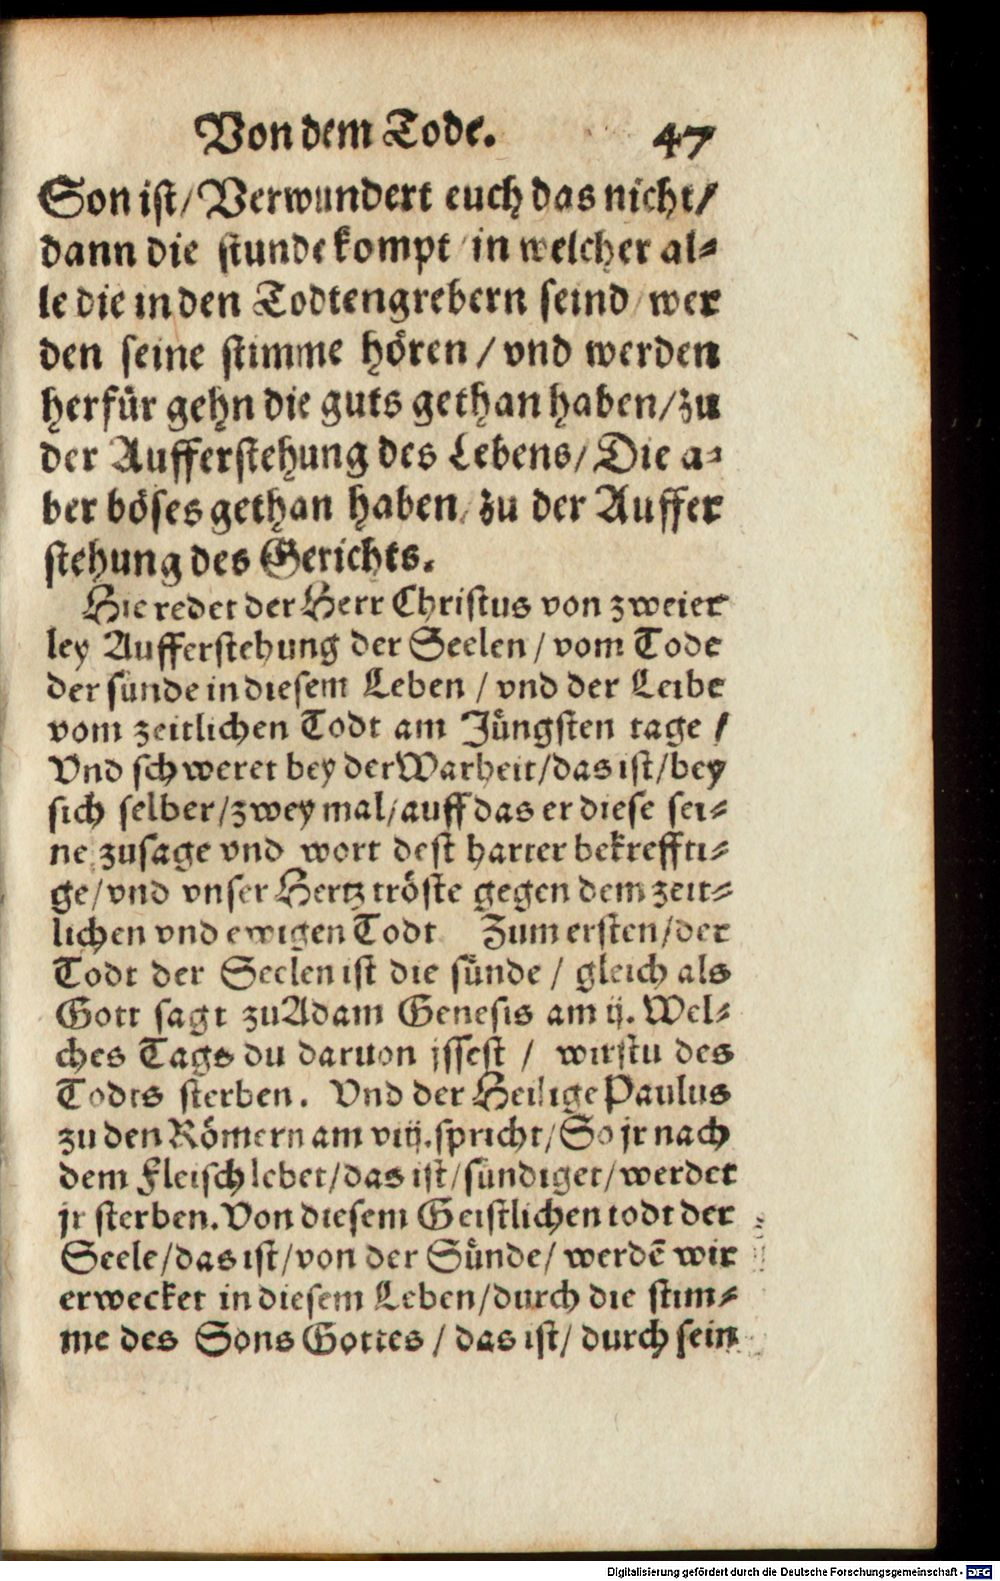 Von dem Tode. 47
Son ist/ Verwundert euch das nicht/
dann die stunde kompt in welcher al⸗
le die in den Todtengrebern seind wer
den seine stimme hören / vnd werden
herfür gehn die guts gethan haben/ zu
der Aufferstehung des Lebens/ Die a⸗
ber böses gethan haben/ zu der Auffer
stehung des Gerichts.
Hie redet der Herr Christus von zweier
ley Aufferstehung der Seelen / vom Tode
der sünde in diesem Leben / vnd der Leibe
vom zeitlichen Todt am Jüngsten tage /
Vnd schweret bey der Warheit/das ist/bey
sich selber/zwey mal/auff das er diese sei⸗
ne zusage vnd wort dest harter bekreffti⸗
ge/vnd vnser Hertz tröste gegen dem zeit⸗
lichen vnd ewigen Todt Zum ersten/der
Todt der Seelen ist die sünde / gleich als
Gott sagt zu Adam Genesis am ij. Wel⸗
ches Tags du daruon jssest / wirstu des
Todts sterben. Vnd der Heilige Paulus
zu den Römern am viij.spricht/So jr nach
dem Fleisch lebet/das ist/sündiget/werdet
jr sterben.Von diesem Geistlichen todt der
Seele/das ist/von der Sünde/ werdē wir
erwecket in diesem Leben/durch die stim⸗
me des Sons Gottes / das ist/ durch sein
Digitalisierung gefördert durch die Deutsche Forschungsgemeinschaft - DFG